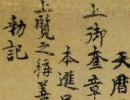 天暦
上御奎章
本進呈
上覧之称善
勅記